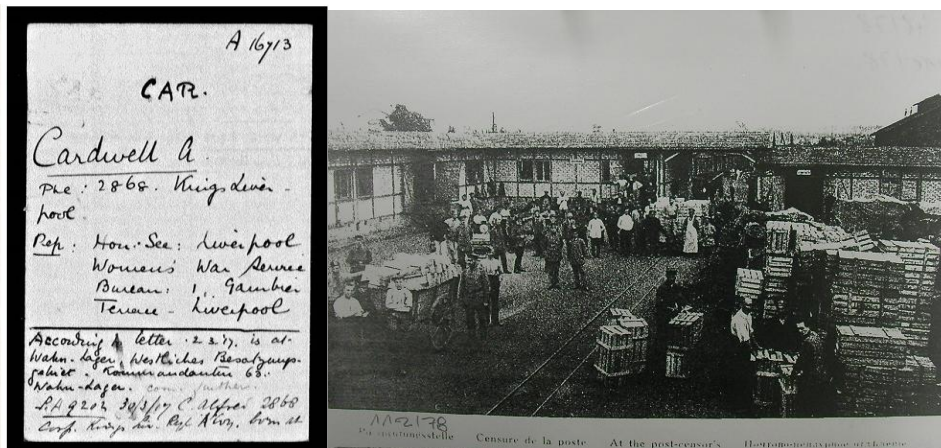 A 16713
CAR.
Cardwell A.
Pte: 2868. Kings Liver-
pool
Rep: Hon. Sec: Liverpool
Women's War Service
Bureau: 1, Gambier
Terrace - Liverpool
According to letter 2.3.17. is at
Wahn-Lager, Westliches Besatzungs-
gebiet. Kommandantur 63.
Wahn-Lager.
P.A 9202 30/3/17 C. Alfred 2868
Corp. Kings Liv.
11-2178
Censure de la poste
At the post-censor's